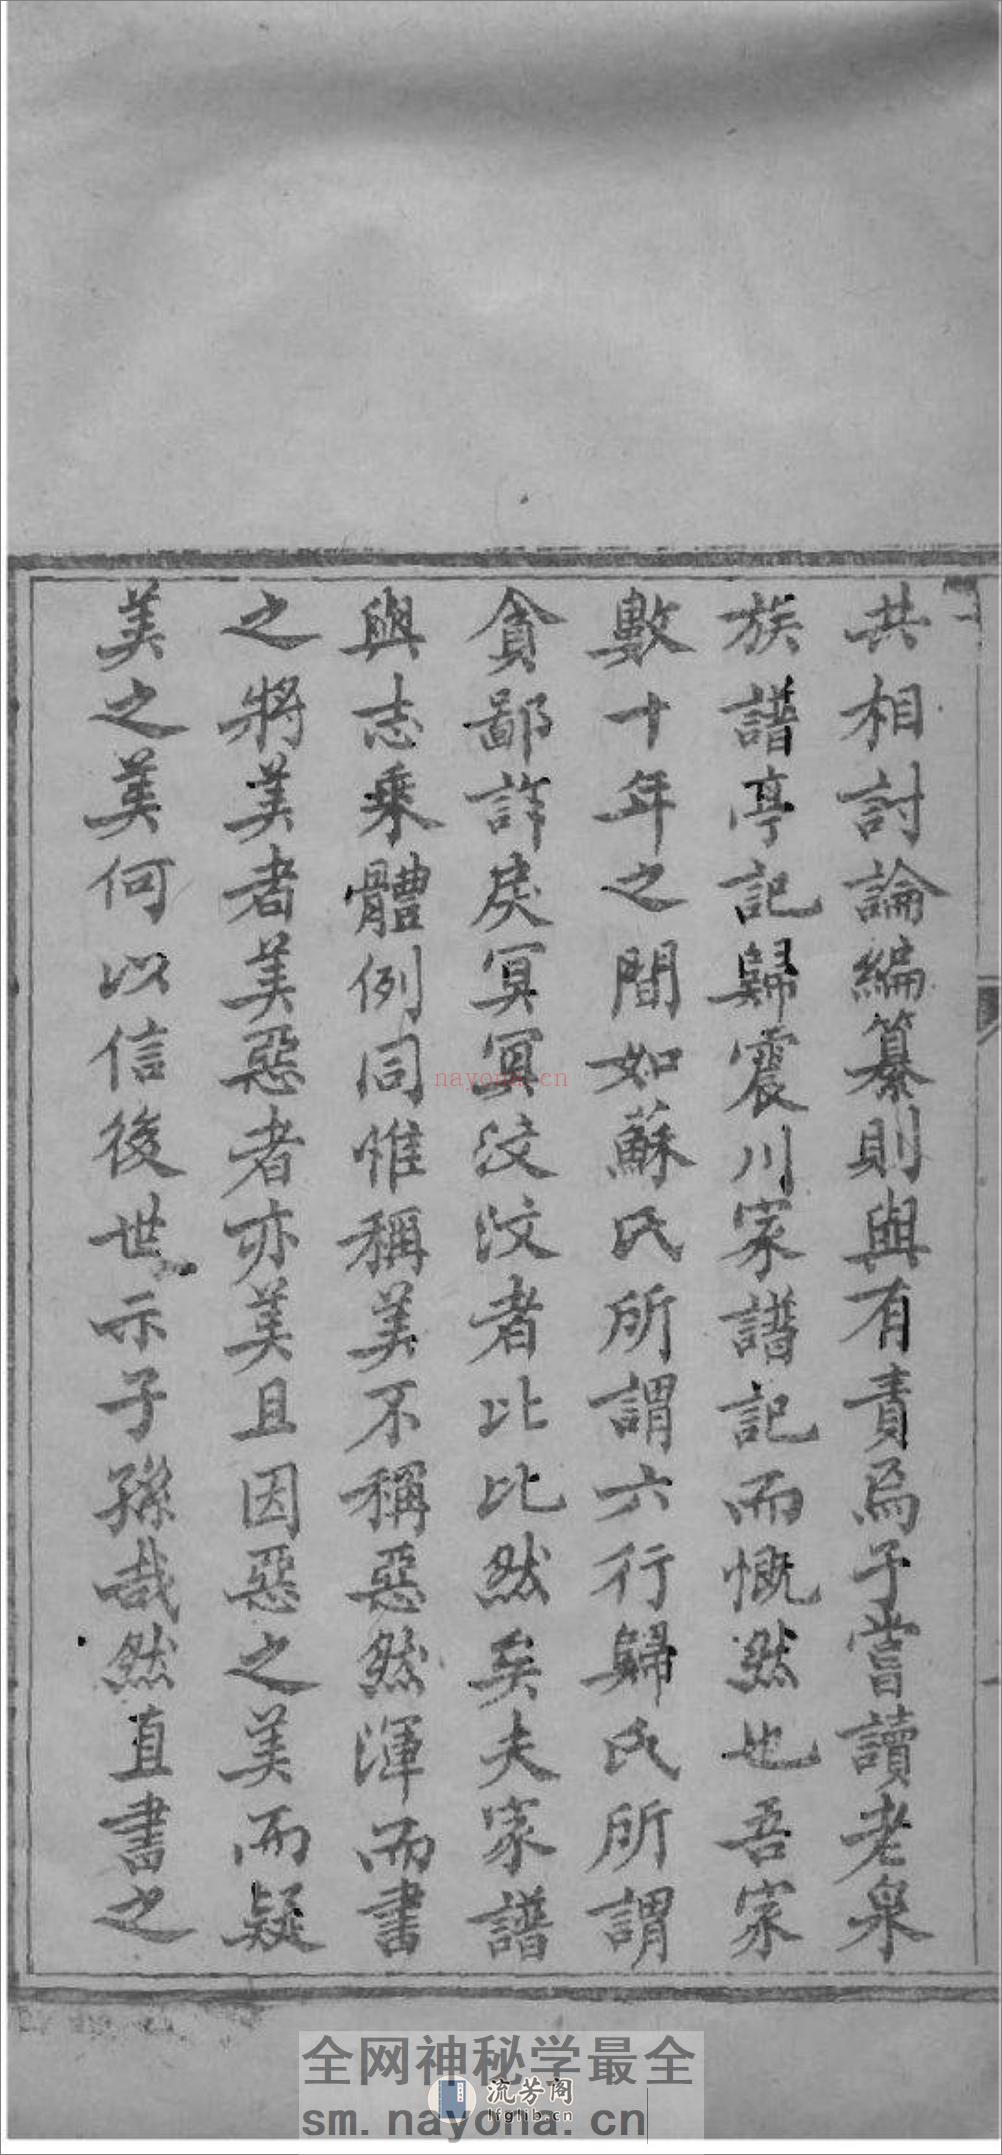 共相討論編纂則與有責焉予嘗讀老泉
族譜亭記歸震川家譜記而慨然也吾家
數十年之間如蘇氏所謂六行歸氏所謂
貪鄙詐戾冥冥汶汶者比比然矣夫家譜
與志乘體例同惟稱美不稱惡然渾而書
之將美者美惡者亦美且因惡之美而疑
美之美何以信後世示子孫哉然直書之
nayona.cn
全网神秘学最全
流芳阁
lfglib.cn
sm.nayona.cn